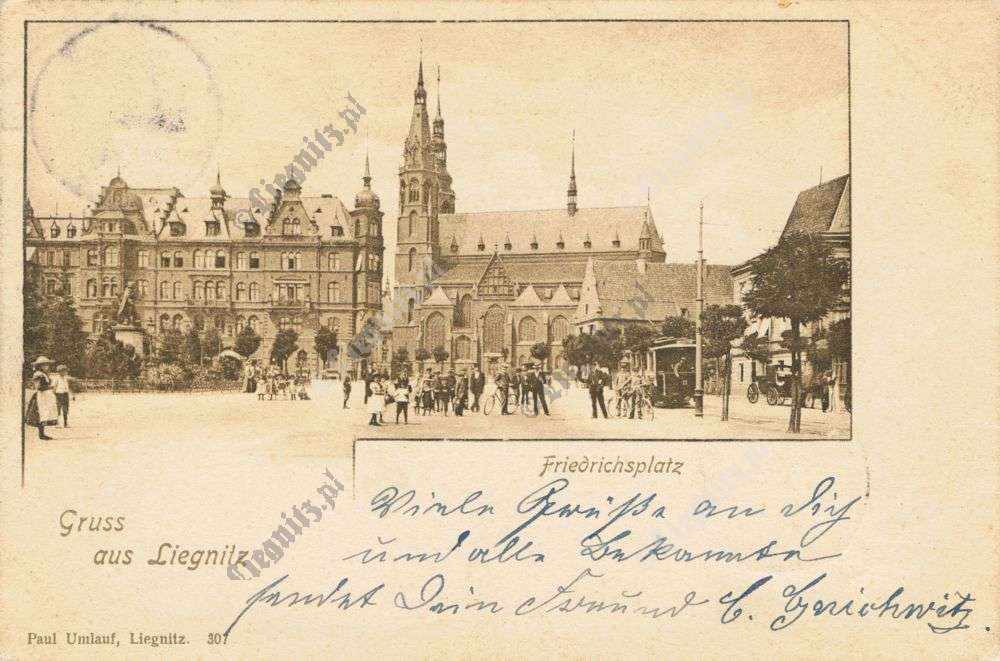 Friedrichsplatz
Gruss
aus Liegnitz
Viele Grüße an Dich
und alle Bekannte
sendet Dein Freund
Paul Umlauf, Liegnitz. 307
Liegnitz.pl
Liegnitz.pl